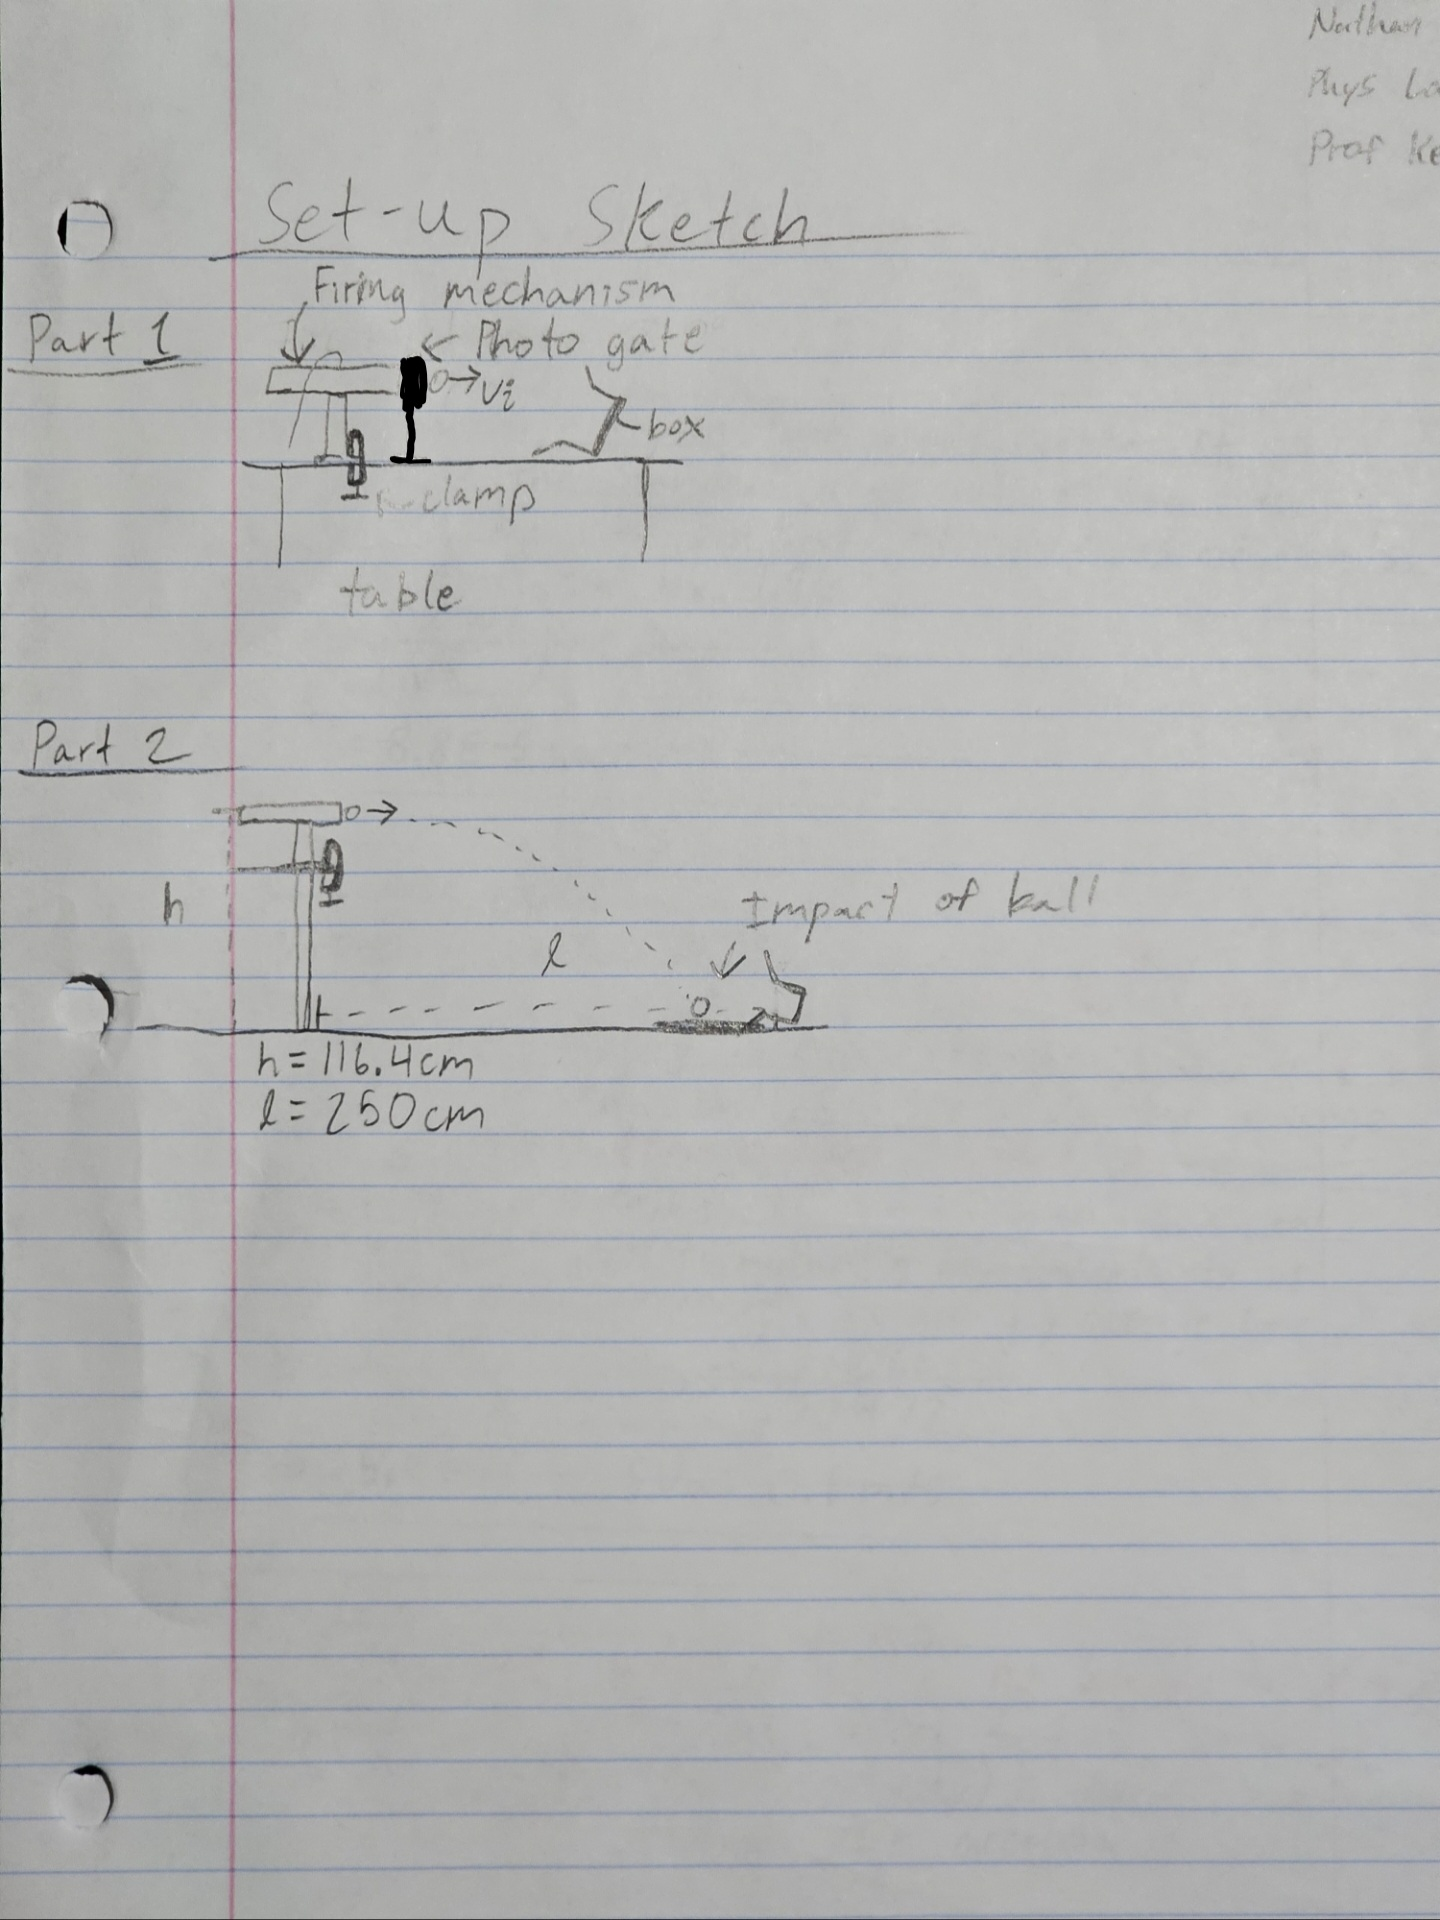 Nathan
Phys La
Prof Ke
Set-up Sketch
Firing mechanism
Part 1
← Photo gate
→ Vi
box
clamp
table
Part 2
h
Impact of ball
l
h = 116.4cm
l = 250cm